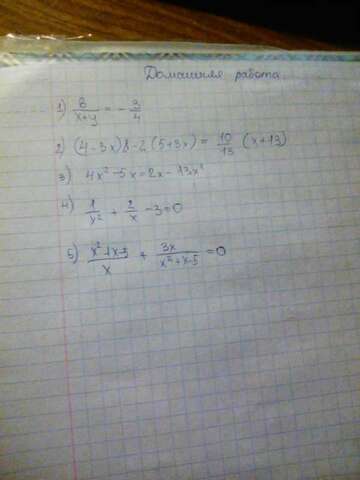 Домашняя работа.
1) 8/(x+y) = -3/4
2) (4-3x)8-2(5+3x) = 10/13 (x+13)
3) 4x²-5x=2x-13x²
4) 1/x² + 2/x -3=0
5) (x²+x-5)/x + 3x/(x²+x-5) =0